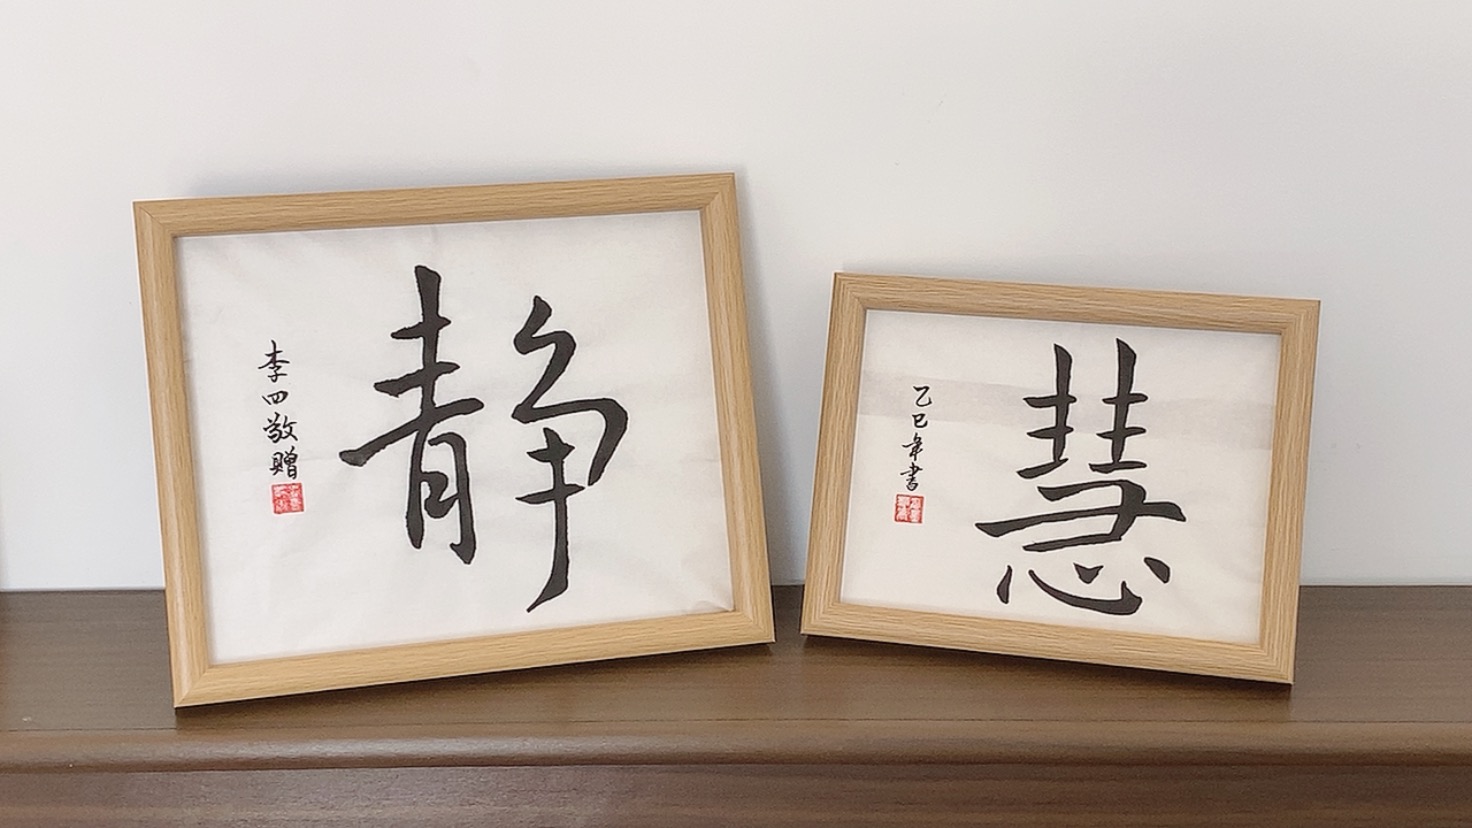 静
李四敬赠
慧
乙巳年書